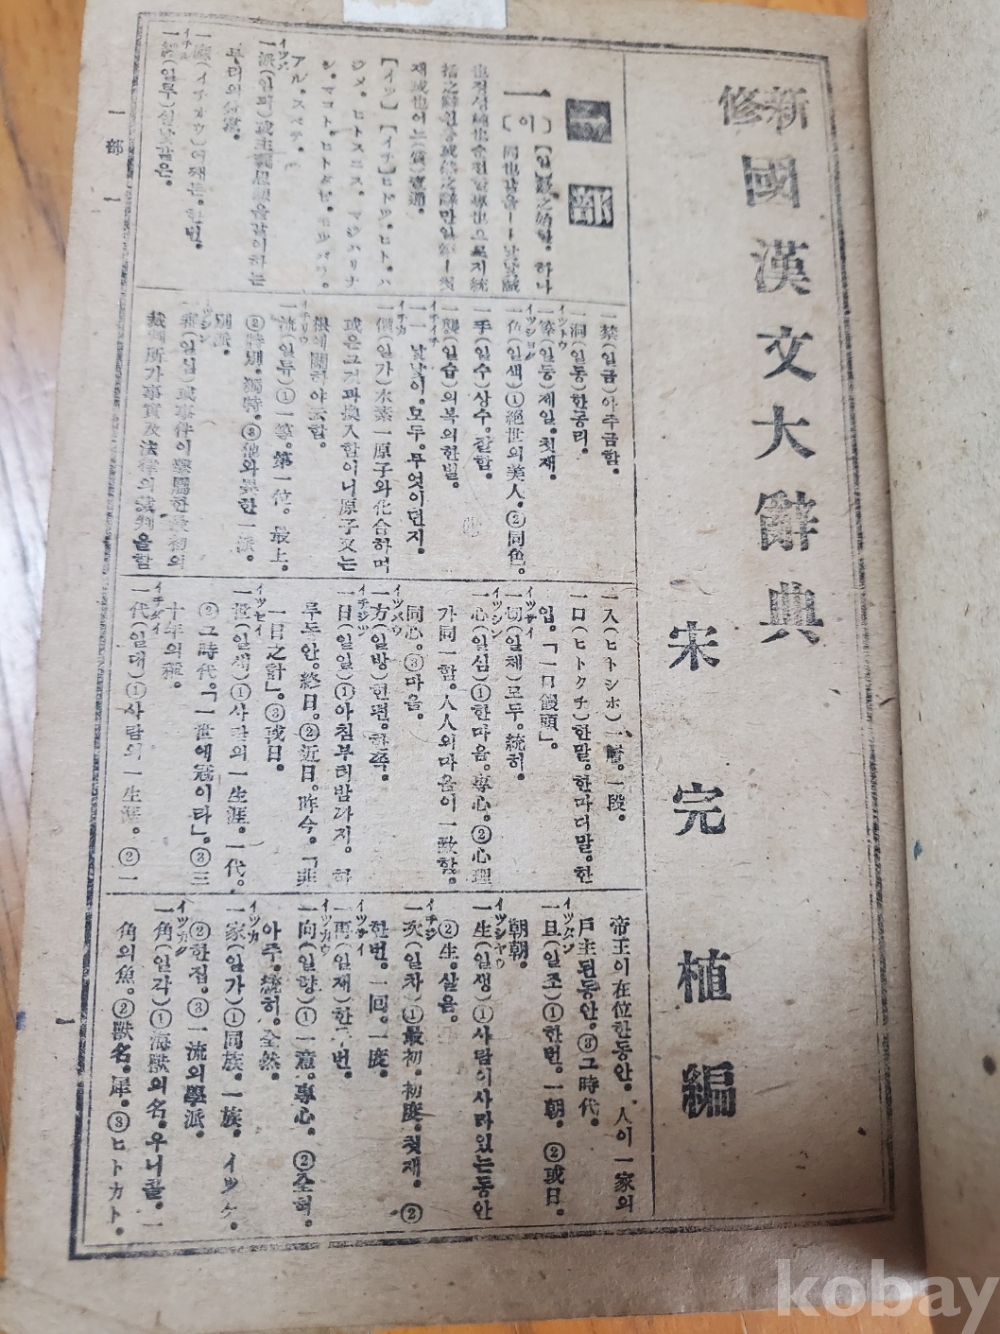 新修 國漢文大辭典
宋完植編
一部
一 [일]數之始할. 하나
[이] 同也같을——낱낱誠
再或也어느(儒)壹通。
【イツ】【イチ】ヒトツ。ヒト。ハ
ジメ。ヒトスニス。マジハリナ
アル。スベテ。
一派(일파)或主義思想을같이하는
무리의分黨。
一禁(일금)아주금함。
一洞(일동)한동리。
一等(일등)제일。첫재。
イットウ
一色(일색)①絕世의美人。②同色。
イッショク
一手(일수)상수。잘함。
一襲(일습)의복의한벌。
一一 낱낱이。모두。무엇이던지。
イチイチ
一價(일가)水素一原子와化合하며
イチカ
或은그것과換入함이니原子又는
根에關하야云함。
一流(일류)①一等。第一位。最上。
イチリウ
②特別。獨特。③他와異한一派。
別派。
一審(일심)或事件이繫屬한最初의
イッシン
裁判所가事實及法律의裁判을함
一入(ヒトシホ)一層。一段。
一口(ヒトクチ)한말。한마디말。한
입。「一口饅頭」。
一切(일체)모두。統히。
イッサイ
一心(일심)①한마음。專心。②心理
イッシン
가同一함。人人의마음이一致함。
同心。③마음。
一方(일방)한편。한쪽。
イッパウ
一日(일일)①아침부터밤까지。하
イチジツ
루동안。終日。②近日。昨今。「非
一日之計」。③或日。
一世(일세)①사람의一生涯。一代。
イッセイ
②그時代。「一世에冠이라」。③三
十年의稱。
一代(일대)①사람의一生涯。②一
イチダイ
帝王이在位한동안。人이一家의
戶主된동안。③그時代。
一旦(일조)①한번。一朝。②或日。
イッタン
朝朝。
一生(일생)①사람이사라있는동안
イッシャウ
②生。살음。
一次(일차)①最初。初度。첫재。②
イチジ
한번。一回。一度。
一再(일재)한두번。
イッサイ
一向(일향)①一意。專心。②全혀。
イッカウ
아주。統히。全然。
一家(일가)①同族。一族。イッケ。
イッカ
②한집。③一流의學派。
一角(일각)①海獸의名。우니콜。一
イッカク
角의魚。②獸名。犀。③ヒトカト。
一部 一
一
kobay